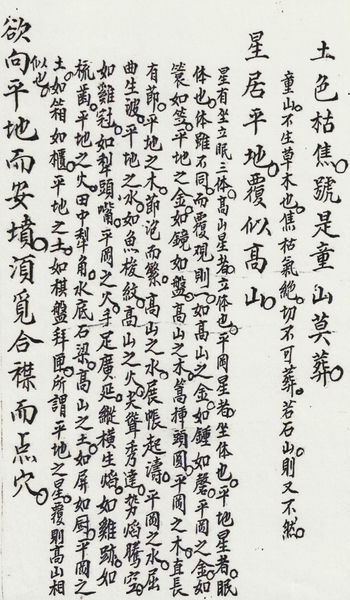 土色枯焦號是童山莫葬
童山不生草木也焦枯氣絕切不可葬若石山則又不然
星居平地覆似高山
星有坐立眠三体高山星者立体也平岡星者坐体也平地星者眠
体也体雖不同而覆現則一如高山之金如鍾如磬平岡之金如
簑如笠平地之金如鏡如盤高山之木篙揷頭圓平岡之木直長
有節平地之木節泡而繁高山之水展帳起濤平岡之水屈
曲生波平地之水如魚梭紋高山之火尖聳秀達勢焰騰空
如雞冠如犁頭嘴平岡之火手足廣延縱橫生焰如雞跡如
梳齒平地之火田中犁角水底石梁高山之土如屏如厨平岡之
土如箱如櫃平地之土如棋盤拜匣所謂平地之星覆則高山相
似也
欲向平地而安墳須覓合襟而点穴